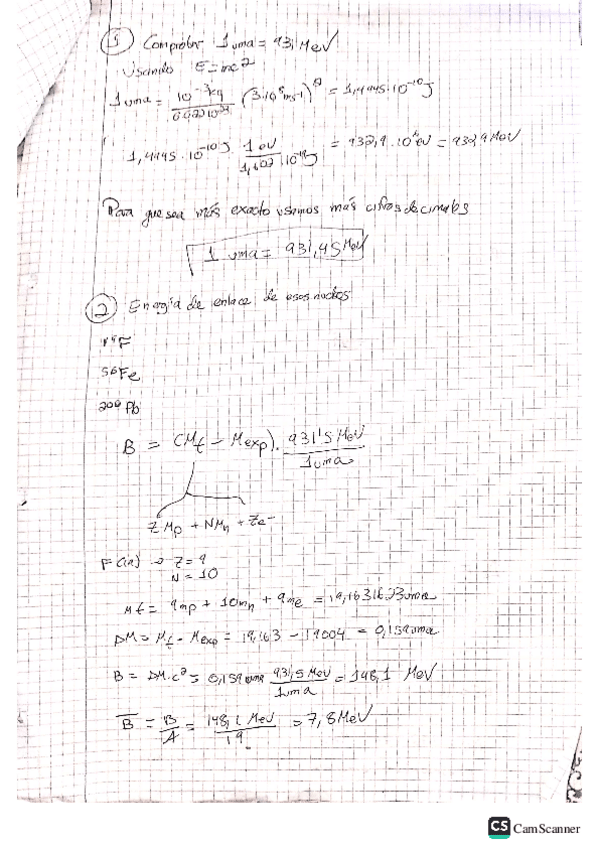 ① Comprobar 1 uma = 931 MeV
Usando E=mc²
1 uma = 10⁻³kg / 6.022·10²³ (3·10⁸ms⁻¹)² = 1,4945·10⁻¹⁰J
1,4945·10⁻¹⁰J · 1 eV / 1,602·10⁻¹⁹J = 932,9·10⁶eV = 932,9 MeV
Para que sea más exacto usamos más cifras decimales
1 uma = 931,45 MeV
② Energía de enlace de esos nucleos
¹⁹F
⁵⁶Fe
Pb
B = (M_t - M_exp) · 931'5 MeV / 1uma
Z M_p + N M_n + Z e⁻
F (19) → Z = 9
N = 10
M_t = 9m_p + 10m_n + 9m_e = 19,1631623uma
ΔM = M_t - M_exp = 19,163 - 19004 = 0,159uma
B = ΔM·c² = 0,159uma 931,5 MeV / 1uma = 148,1 MeV
B̅ = B/A = 148,1 MeV / 19 = 7,8 MeV
CS CamScanner